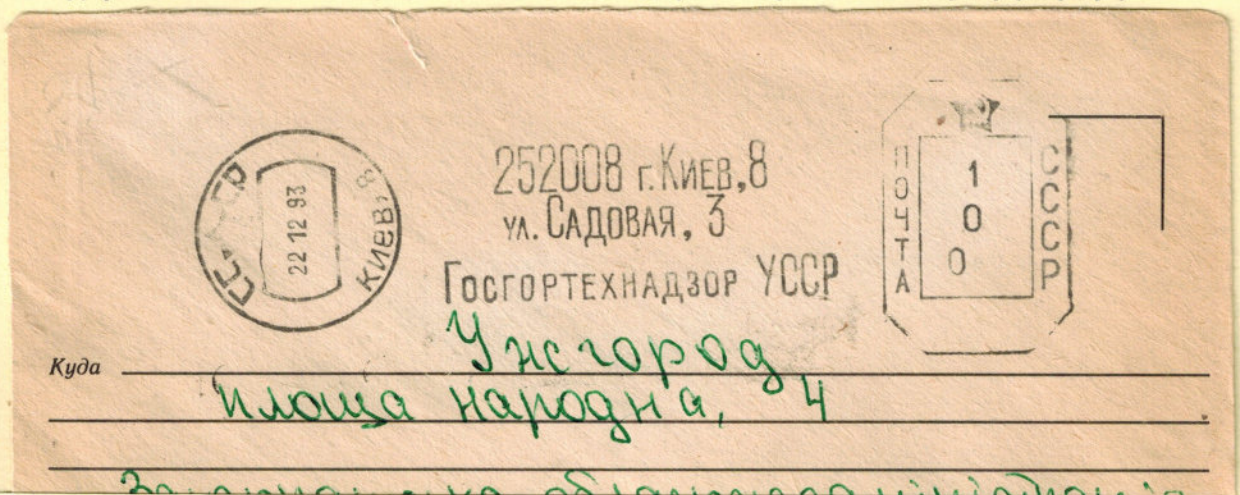 КИЕВ, 8
22 12 93
252008 г. КИЕВ, 8
ул. САДОВАЯ, 3
ГОСГОРТЕХНАДЗОР УССР
ПОЧТА
1
0
0
СССР
Ужгород
Куда
площа народна, 4